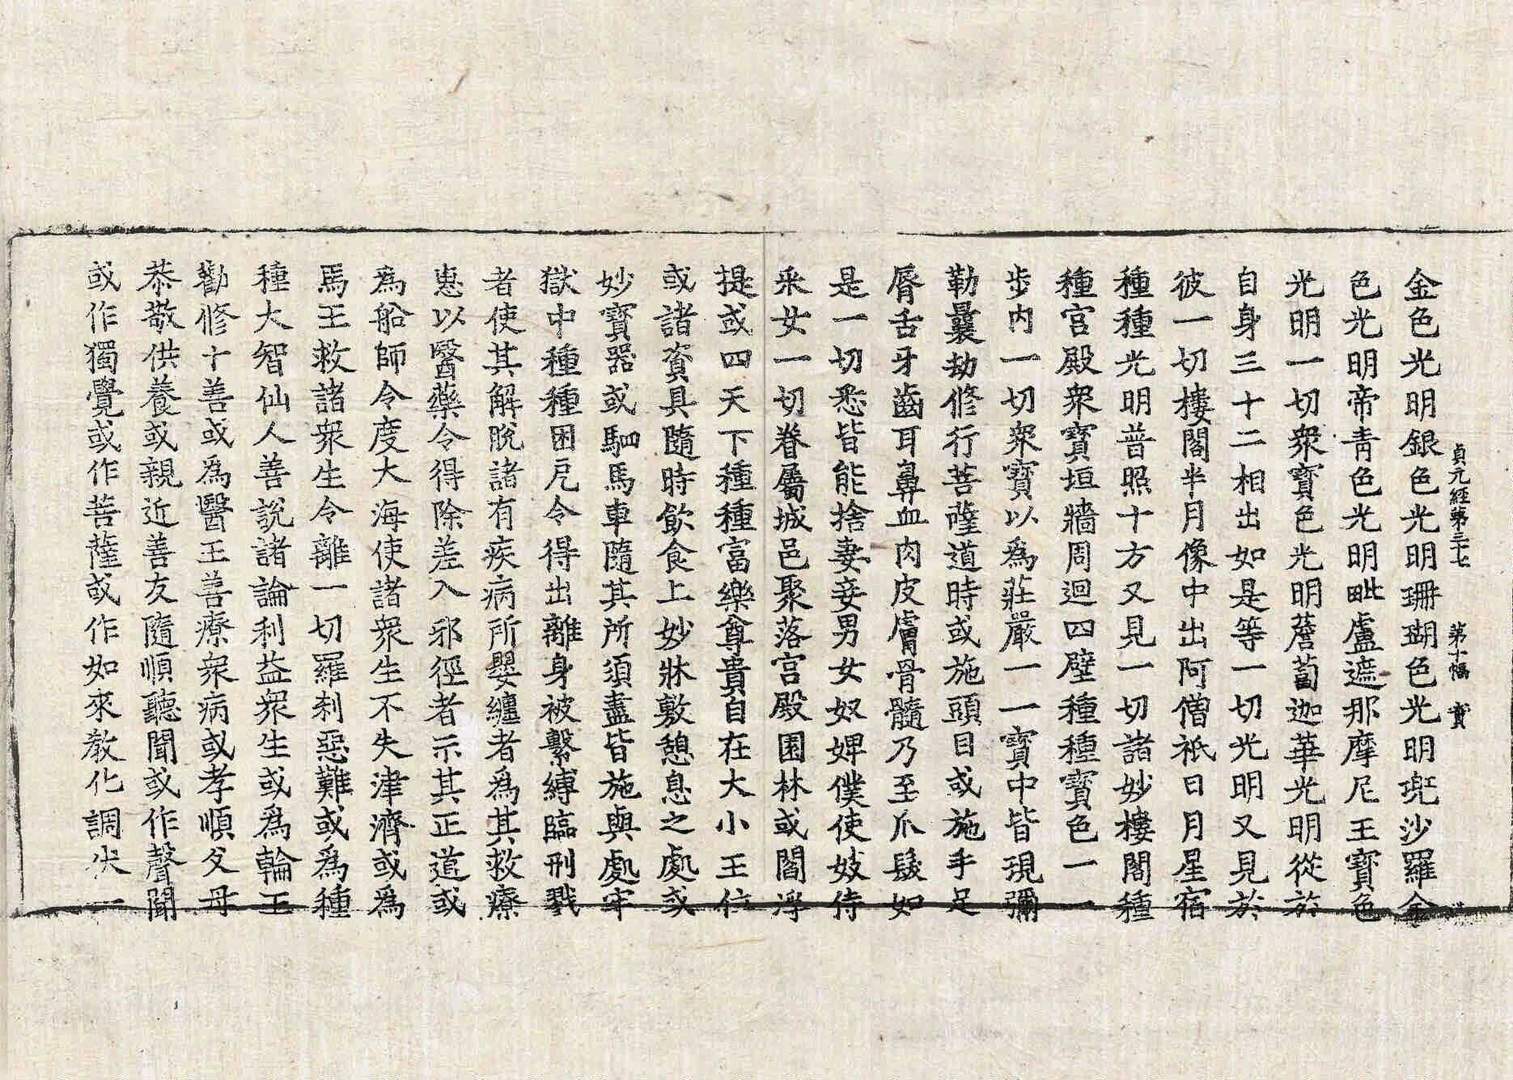 貞元經第三十七　第十幅　寶
金色光明銀色光明珊瑚色光明兠沙羅金
色光明帝青色光明毗盧遮那摩尼王寶色
光明一切衆寶色光明薝蔔迦華光明從於
自身三十二相出如是等一切光明又見於
彼一切樓閣半月像中出阿僧祇日月星宿
種種光明普照十方又見一切諸妙樓閣種
種宮殿衆寶垣牆周迴四壁種種寶色一一
步內一切衆寶以爲莊嚴一一寶中皆現彌
勒曩劫修行菩薩道時或施頭目或施手足
脣舌牙齒耳鼻血肉皮膚骨髓乃至爪髮如
是一切悉皆能捨妻妾男女奴婢僕使妓侍
采女一切眷屬城邑聚落宮殿園林或閻浮
提或四天下種種富樂尊貴自在大小王位
或諸資具隨時飲食上妙牀敷憩息之處或
妙寶器或駟馬車隨其所須盡皆施與處牢
獄中種種困戹令得出離身被繫縛臨刑戮
者使其解脫諸有疾病所嬰纏者爲其救療
惠以醫藥令得除差入邪徑者示其正道或
爲船師令度大海使諸衆生不失津濟或爲
馬王救諸衆生令離一切羅刹惡難或爲種
種大智仙人善說諸論利益衆生或爲輪王
勸修十善或爲醫王善療衆病或孝順父母
恭敬供養或親近善友隨順聽聞或作聲聞
或作獨覺或作菩薩或作如來教化調伏一